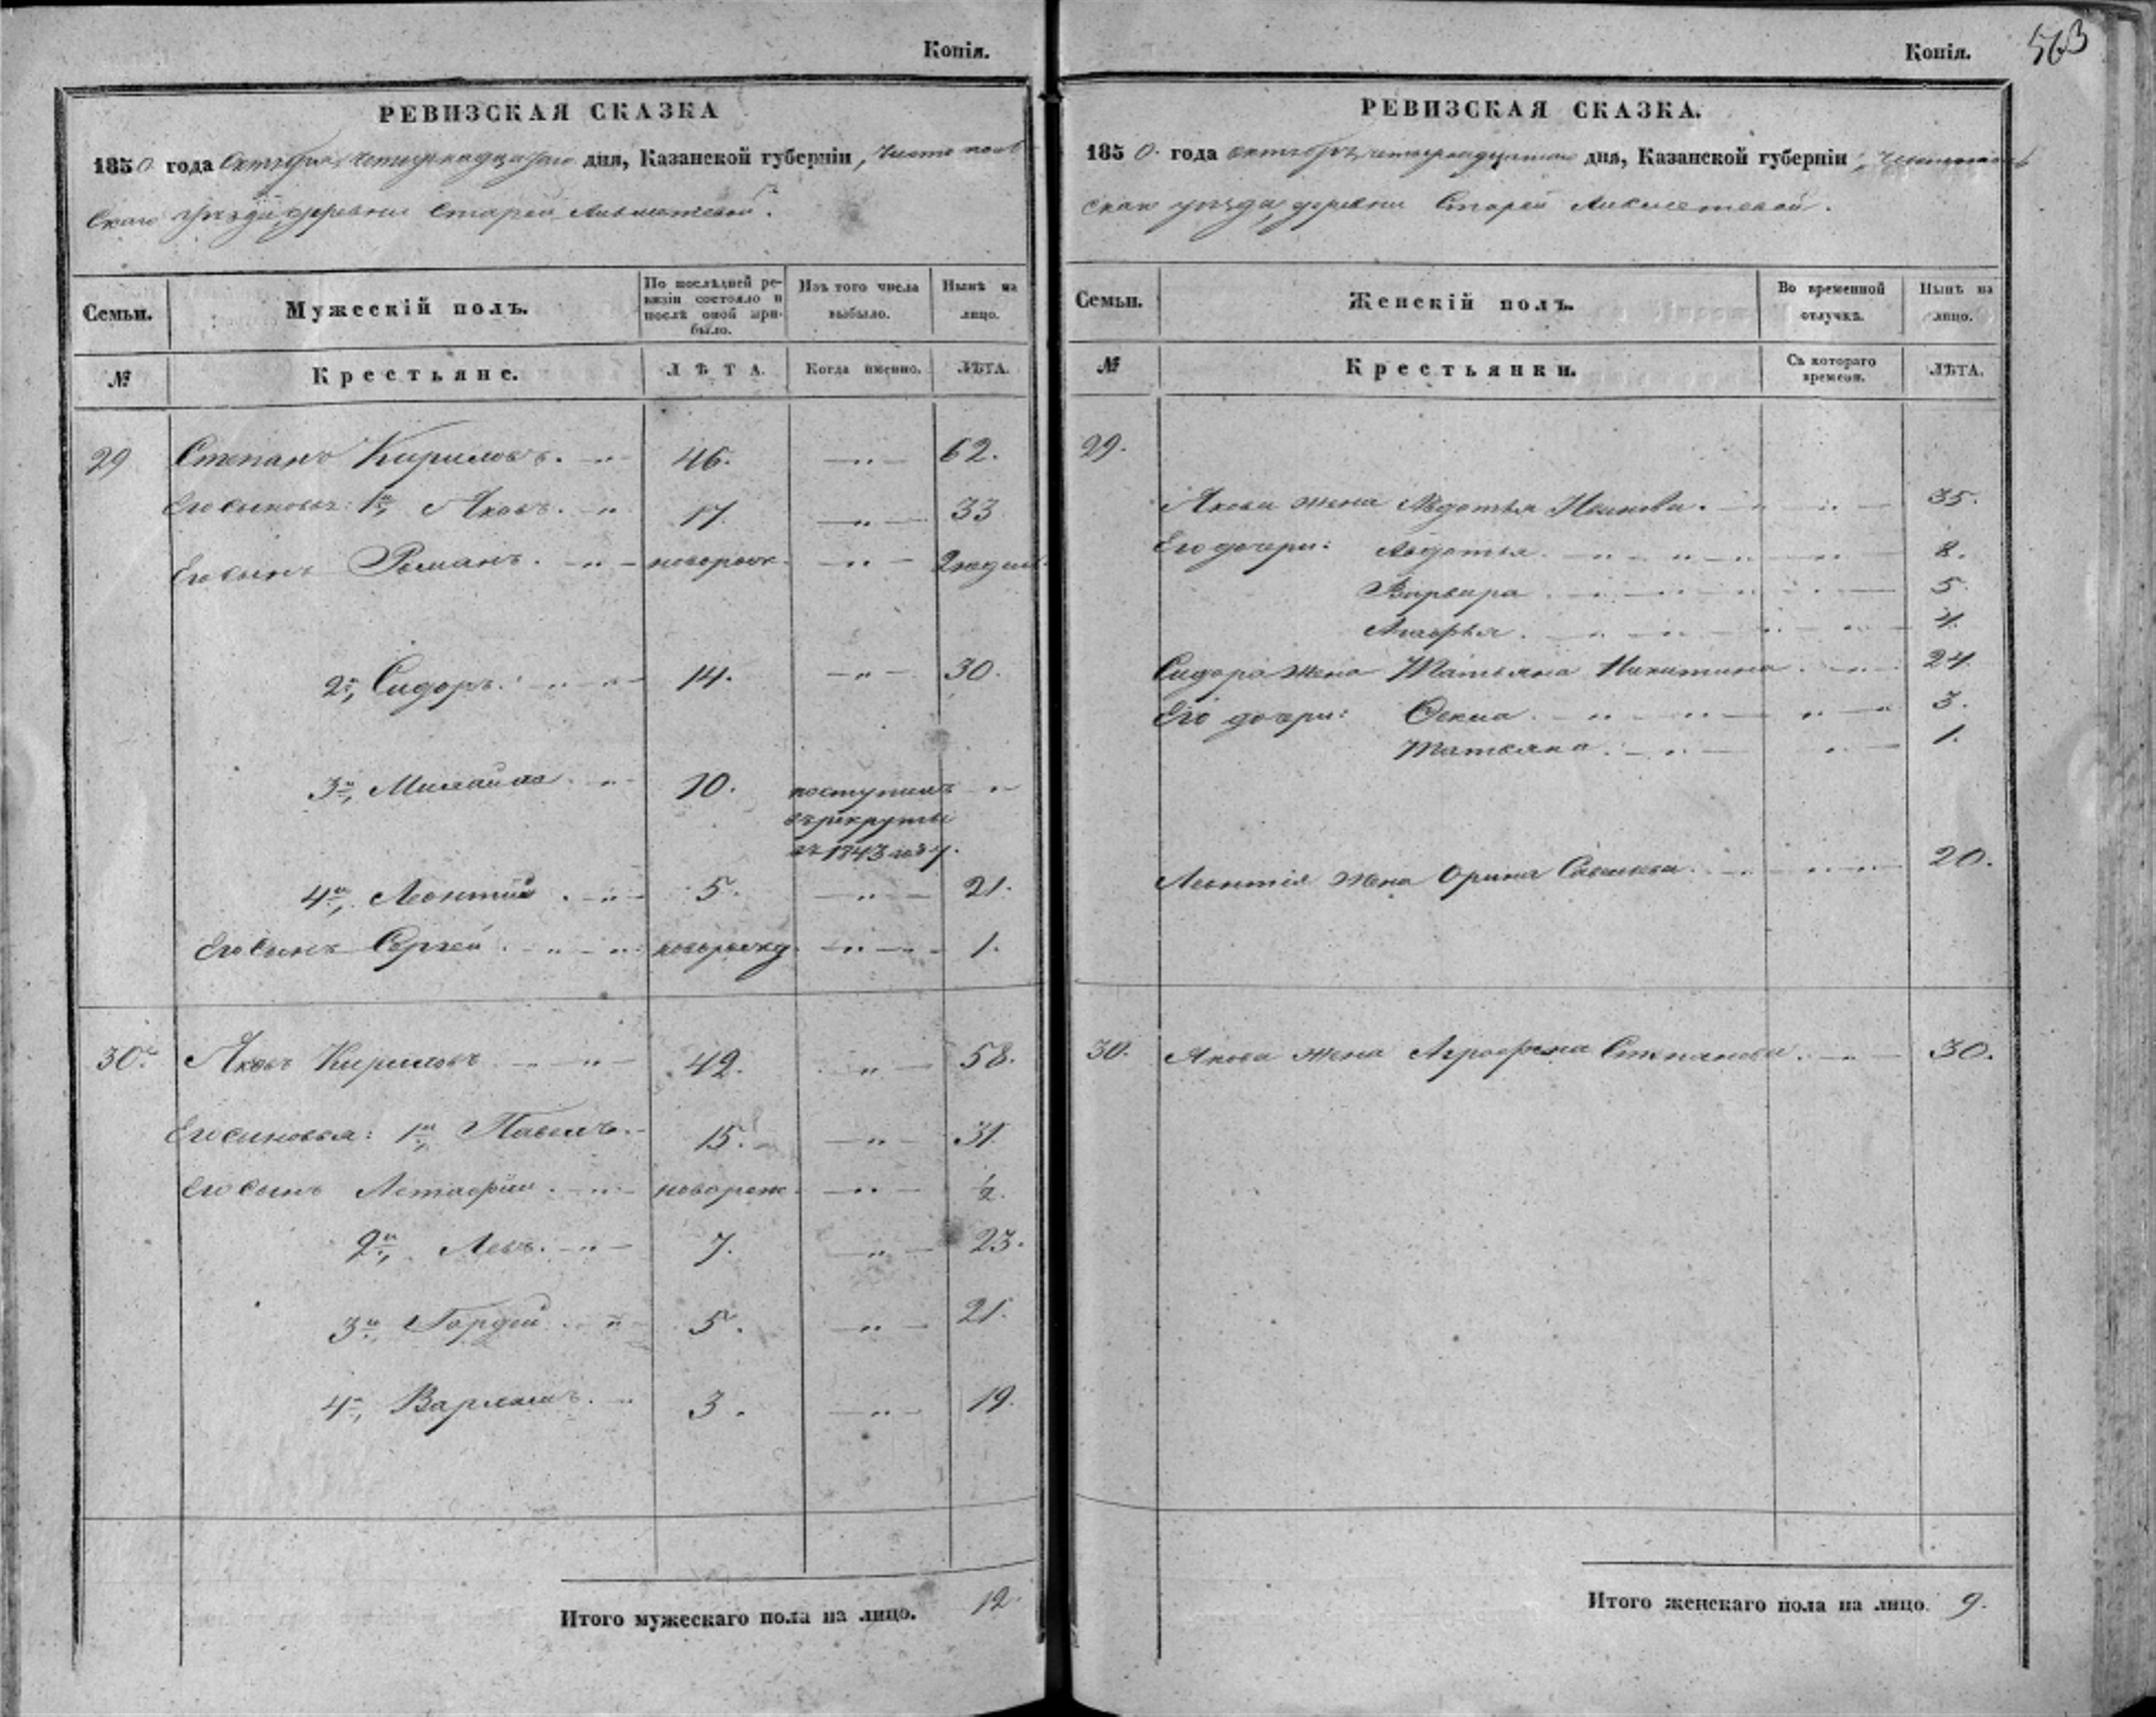 Копія.
РЕВИЗСКАЯ СКАЗКА
1850 года Октября четырнадцатаго дня, Казанской губерніи, Чистополь-
скаго уѣзда, деревни Старой
Семьи. Мужескій полъ. По послѣдней ревизіи состояло и послѣ оной прибыло. Изъ того числа выбыло. Нынѣ на лицо.
№ Крестьяне. ЛѢТА. Когда именно. ЛѢТА.
29 Степанъ Кириловъ. 46. 62.
Его сыновья: 1й, Яковъ. 17. 33
Его сынъ Романъ. новорож. 2 недѣли.
2й, Сидоръ. 14. 30.
3й, Михайла 10. поступилъ
въ рекруты
въ 1843 году.
4й, Леонтій 5. 21.
Его сынъ Сергей новорожд. 1.
30. Яковъ Кириловъ 42. 58.
Его сыновья: 1й, Павелъ. 15. 31.
Его сынъ новорож. ½.
2й, Левъ. 7. 23.
3й, Гордей 5. 21.
4й, Варламъ. 3. 19.
Итого мужескаго пола на лицо. 12.
Копія. 563
РЕВИЗСКАЯ СКАЗКА.
1850. года октября четырнадцатаго дня, Казанской губерніи, Чистополь
скаго уѣзда, деревни Старой
Семьи. Женскій полъ. Во временной отлучкѣ. Нынѣ на лицо.
№ Крестьянки. Съ котораго времени. ЛѢТА.
29.
Якова жена Авдотья Иванова. 35.
Его дочери: Авдотья 8.
Варвара 5.
4.
Сидора жена Татьяна Никитина 24
Его дочери: Фекла 3.
Татьяна. 1.
Леонтія жена Орина Савельева 20.
30. Якова жена Аграфена Степанова. 30.
Итого женскаго пола на лицо. 9.